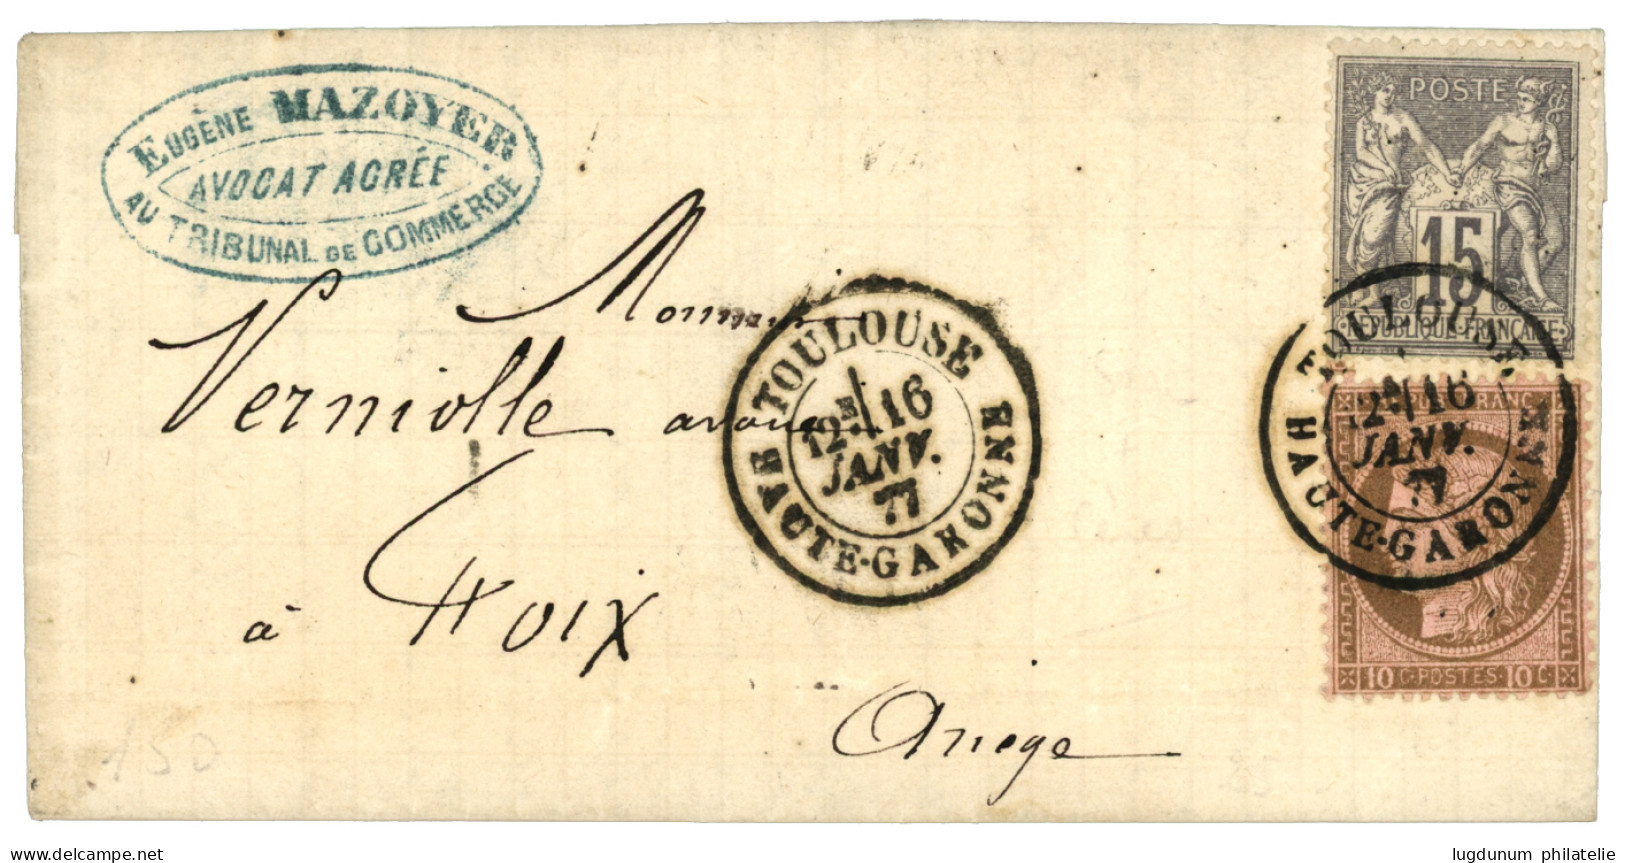 EUGÈNE MAZOYER
AVOCAT AGRÉE
AU TRIBUNAL DE COMMERCE
POSTE
15
REPUBLIQUE FRANÇAISE
Verniolle avoué
à Foix
Ariege
TOULOUSE
12E 16
JANV.
77
HAUTE-GARONNE
TOULOUSE
12E 16
JANV.
77
HAUTE-GARONNE
FRANC
10 C·POSTES·10 C
150
delcampe.net
lugdunum philatelie